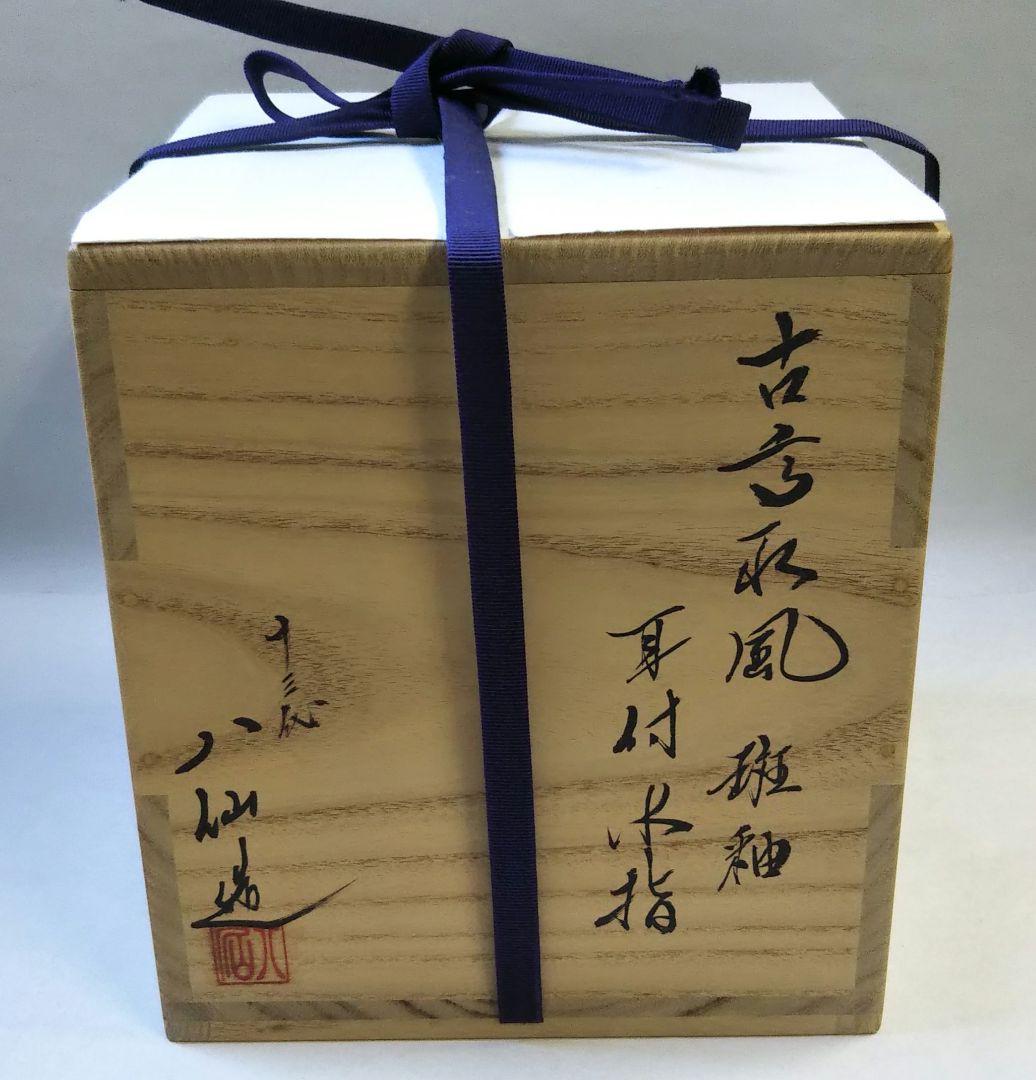 古高取風 斑釉
耳付水指
十三代
八仙造
八仙